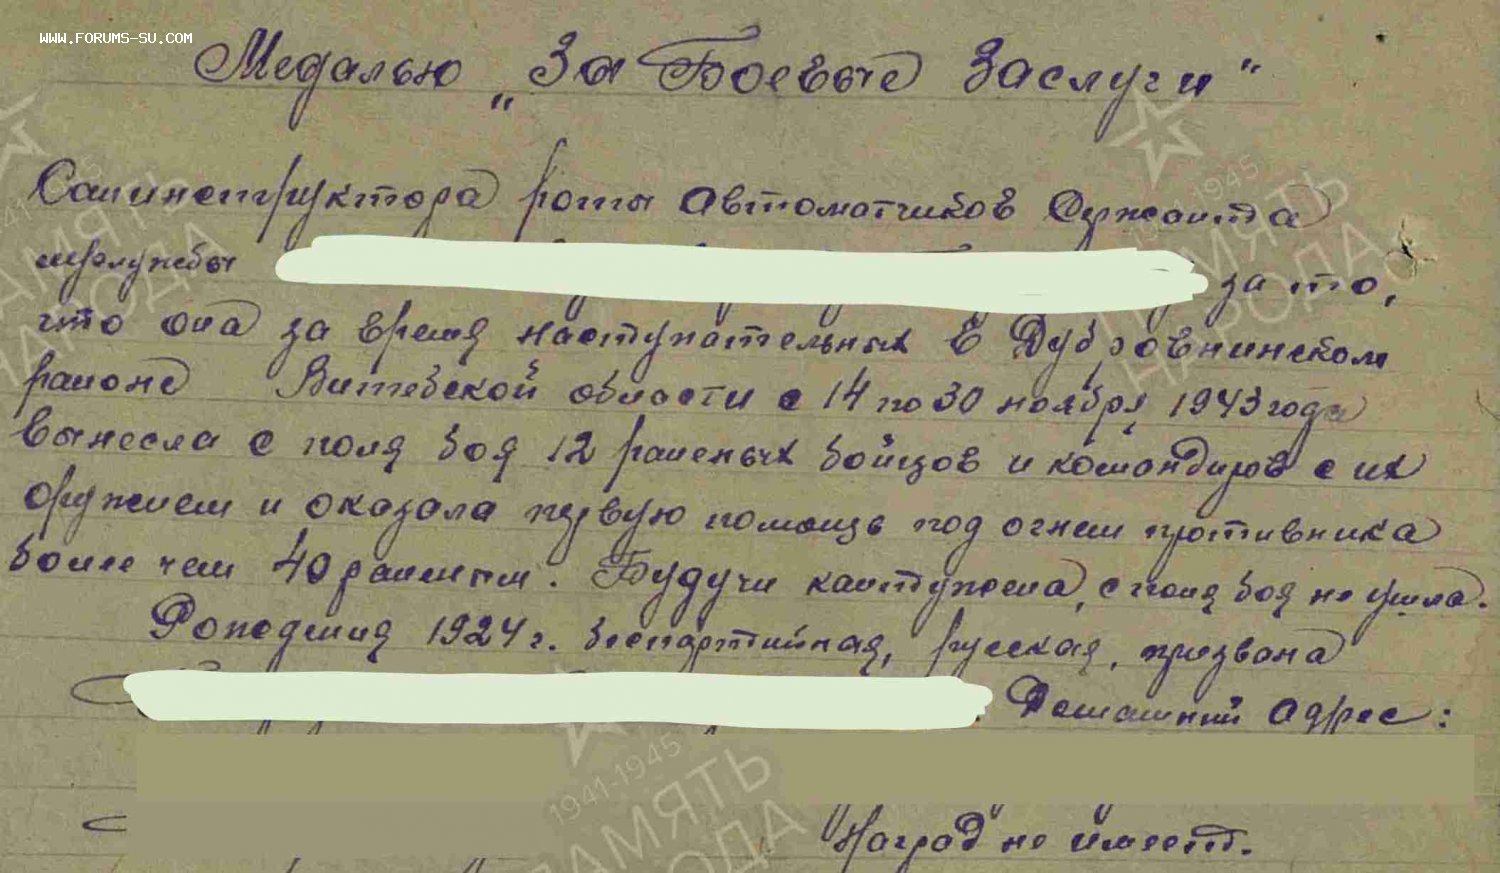 WWW.FORUMS-SU.COM
Медалью „За Боевые Заслуги"
Санинструктора роты автоматчиков Сержанта
медслужбы за то,
что она за время наступательных в Дубровнинском
районе Витебской области с 14 по 30 ноября 1943 года
вынесла с поля боя 12 раненых бойцов и командиров с их
оружием и оказала первую помощь под огнем противника
более чем 40 раненым. Будучи контужена, с поля боя не ушла.
Рождения 1924 г. беспартийная, русская, призвана
Домашний адрес:
Наград не имеет.
1941-1945
ПАМЯТЬ
НАРОДА
1941-1945
ПАМЯТЬ
НАРОДА
1941-1945
ПАМЯТЬ
НАРОДА